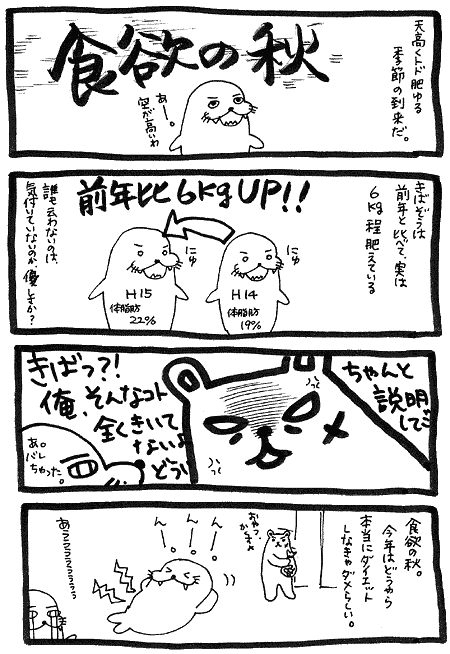 天高くトド肥ゆる
季節の到来だ。
食欲の秋
あー。
空が高いわ
きばぞうは
前年と比べて、実は
6kg程肥えている
前年比6kgUP!!
にゅ
にゅ
H14
体脂肪
19%
H15
体脂肪
22%
誰も云わないのは、
気付いていないのか優しさか?
ちゃんと
説明
してご
きばっ?!
俺、そんなコト
全くきいて
ないよ
どうい
あ。
バレ
ちゃった。
食欲の秋。
今年はどうやら
本当にダイエット
しなきゃダメらしい。
おやつ、
かくすよ
んー!
んー!
んー!